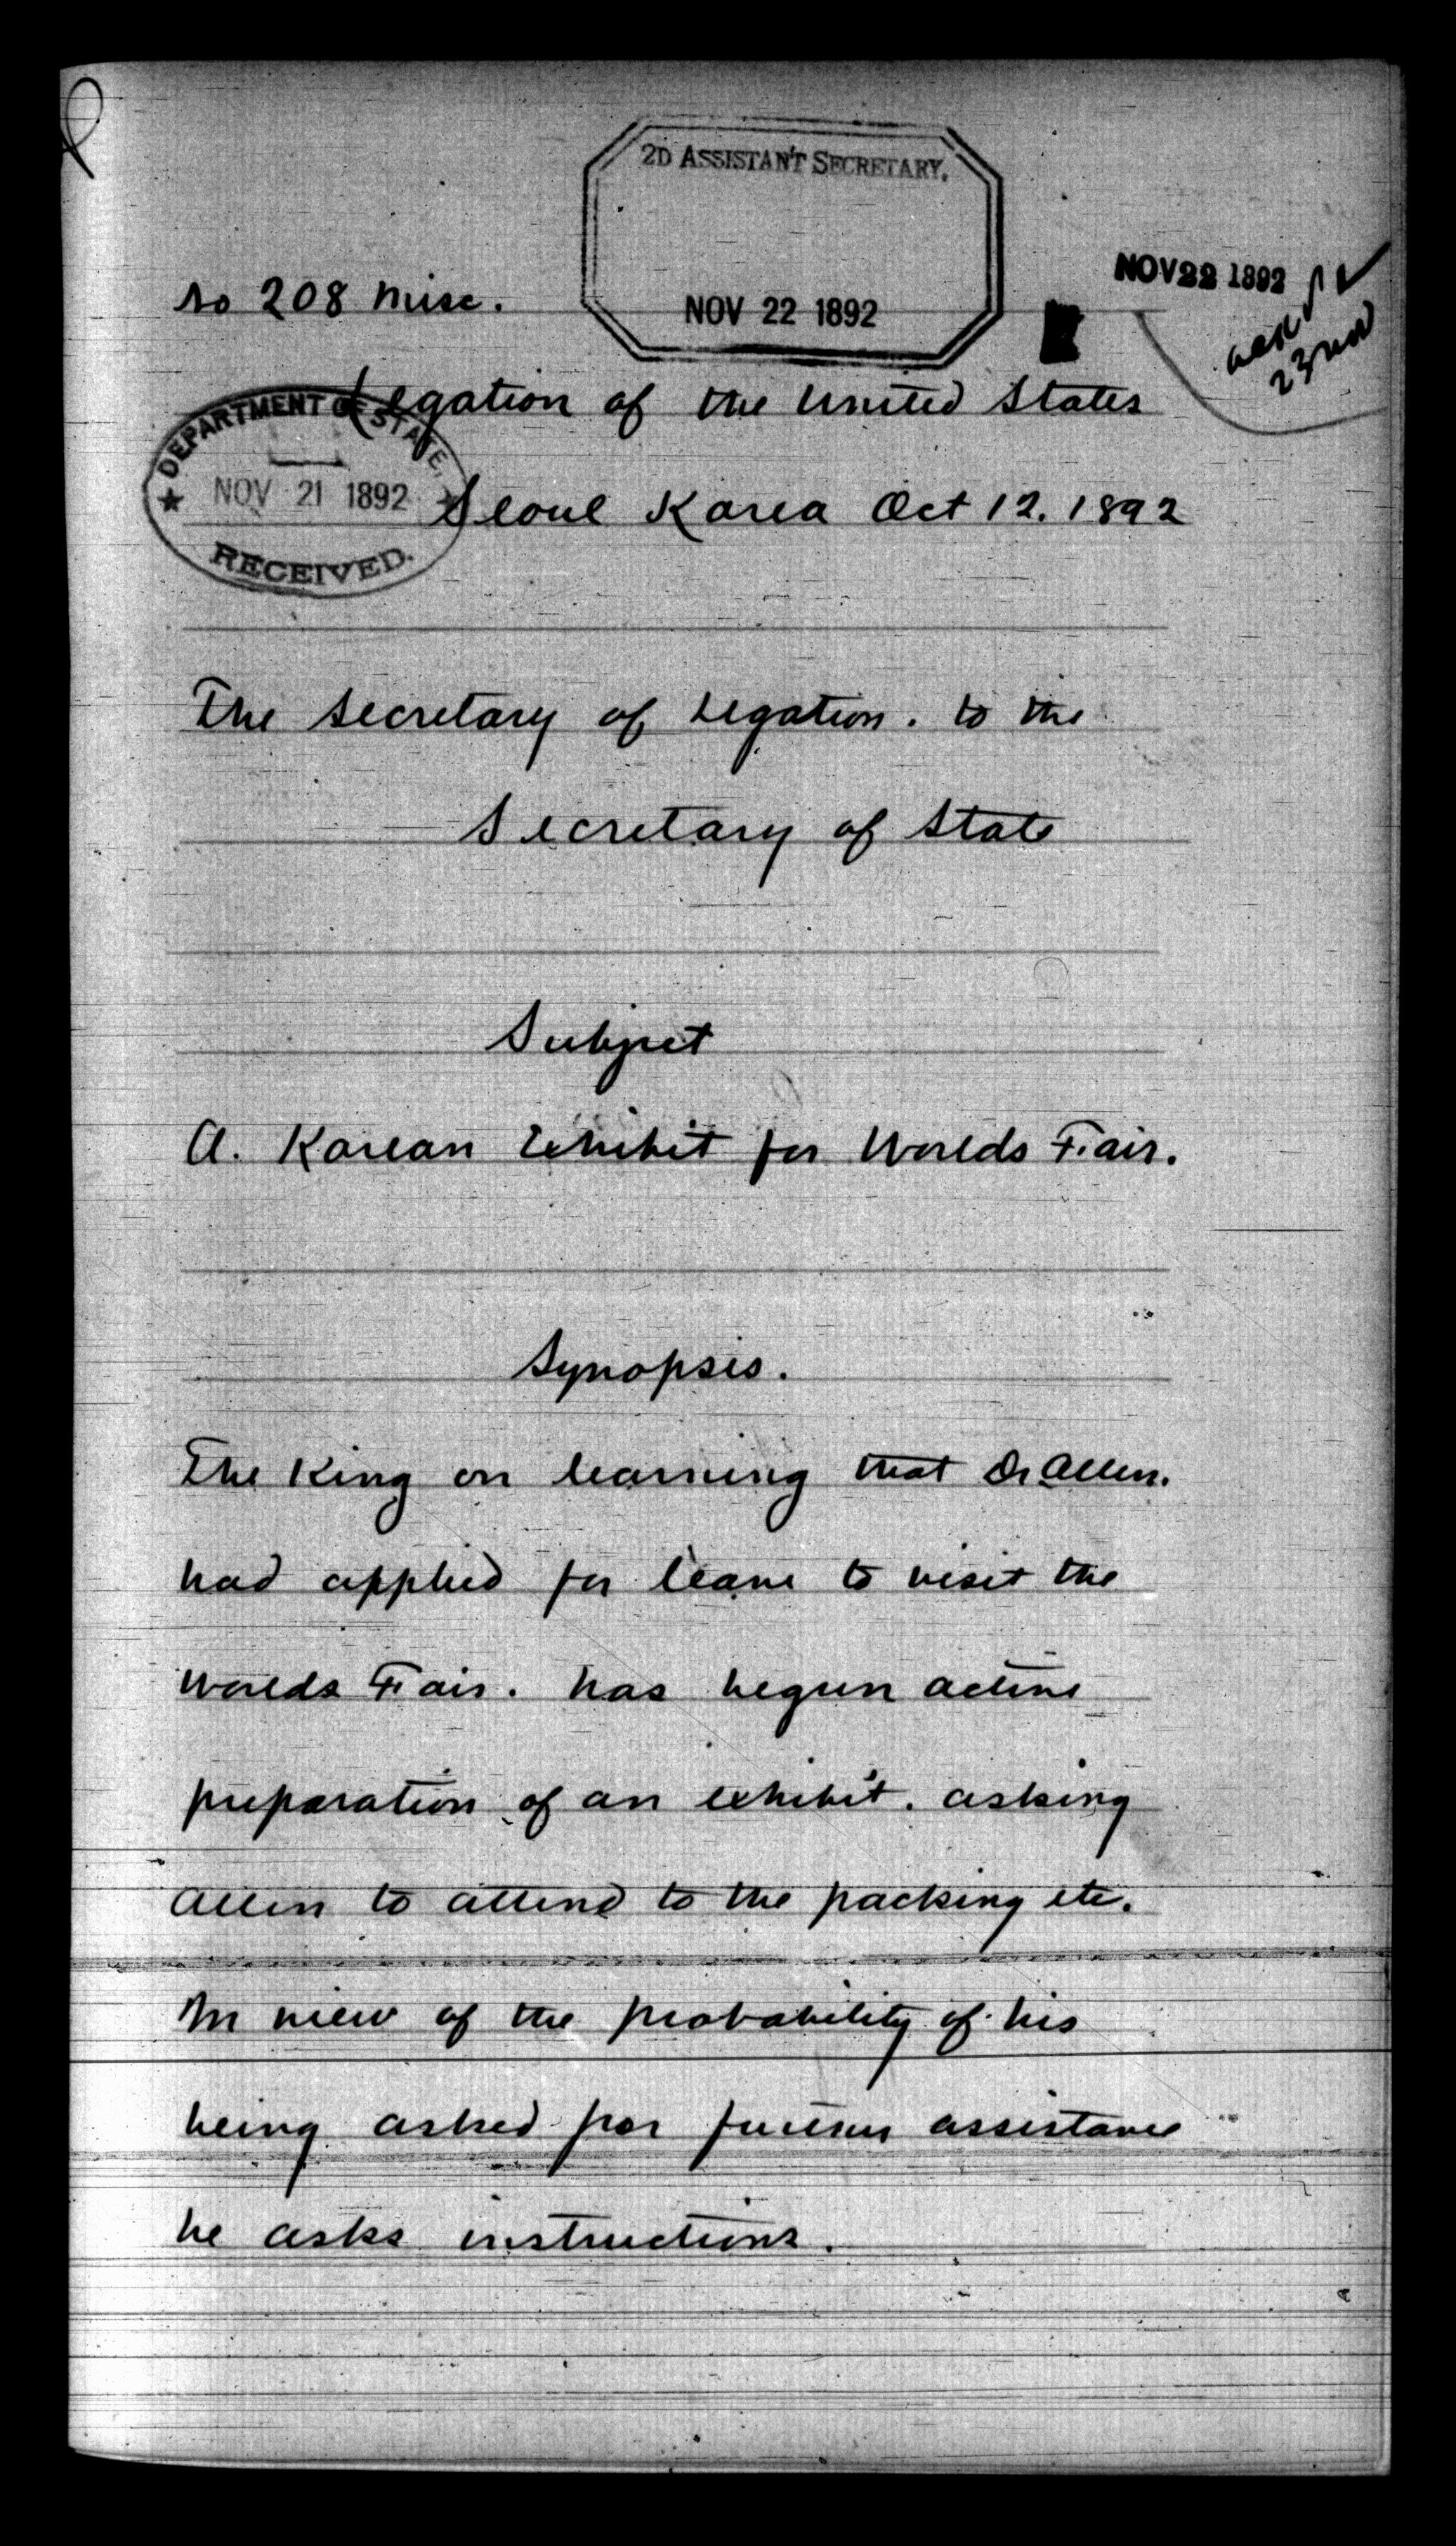 2D ASSISTANT SECRETARY.
NOV 22 1892
NOV 22 1892
No 208 Misc.
ack
23 Nov
Legation of the United States
DEPARTMENT OF STATE,
NOV 21 1892
RECEIVED.
Seoul Korea Oct 12. 1892
The Secretary of Legation. to the
Secretary of State
Subject
A. Korean Exhibit for Worlds Fair.
Synopsis.
The King on learning that Dr Allen.
had applied for leave to visit the
Worlds Fair. has begun active
preparation of an exhibit. asking
Allen to attend to the packing etc.
In view of the probability of his
being asked for further assistance
he asks instructions.